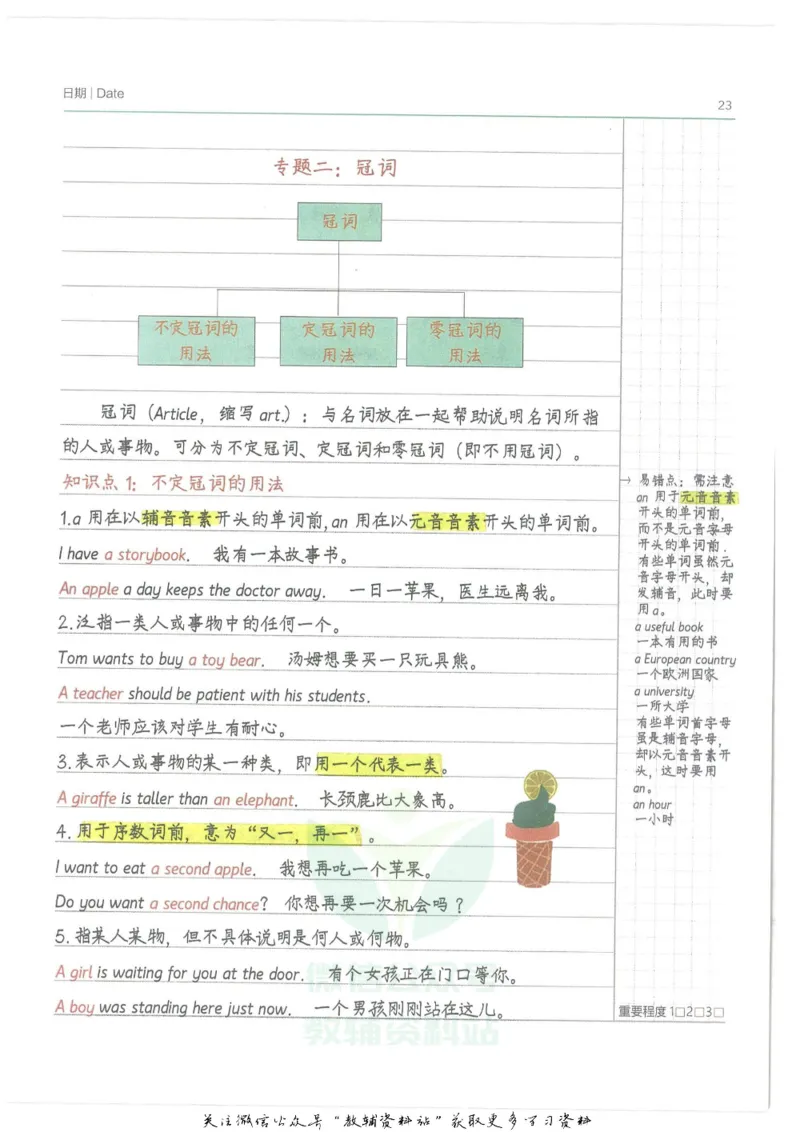 日期 | Date
23
专题二：冠词
冠词
不定冠词的
用法
定冠词的
用法
零冠词的
用法
冠词（Article，缩写 art.）：与名词放在一起帮助说明名词所指
的人或事物。可分为不定冠词、定冠词和零冠词（即不用冠词）。
知识点1：不定冠词的用法
1.a 用在以辅音音素开头的单词前,an 用在以元音音素开头的单词前。
I have a storybook. 我有一本故事书。
An apple a day keeps the doctor away. 一日一苹果，医生远离我。
2.泛指一类人或事物中的任何一个。
Tom wants to buy a toy bear. 汤姆想要买一只玩具熊。
A teacher should be patient with his students.
一个老师应该对学生有耐心。
3.表示人或事物的某一种类，即用一个代表一类。
A giraffe is taller than an elephant. 长颈鹿比大象高。
4.用于序数词前，意为“又一，再一”。
I want to eat a second apple. 我想再吃一个苹果。
Do you want a second chance? 你想再要一次机会吗？
5.指某人某物，但不具体说明是何人或何物。
A girl is waiting for you at the door. 有个女孩正在门口等你。
A boy was standing here just now. 一个男孩刚刚站在这儿。
→ 易错点：需注意
an 用于元音音素
开头的单词前，
而不是元音字母
开头的单词前.
有些单词虽然元
音字母开头，却
发辅音，此时要
用a。
a useful book
一本有用的书
a European country
一个欧洲国家
a university
一所大学
有些单词首字母
虽是辅音字母，
却以元音音素开
头，这时要用
an。
an hour
一小时
重要程度 1□2□3□
教辅资料站
关注微信公众号“教辅资料站”获取更多学习资料